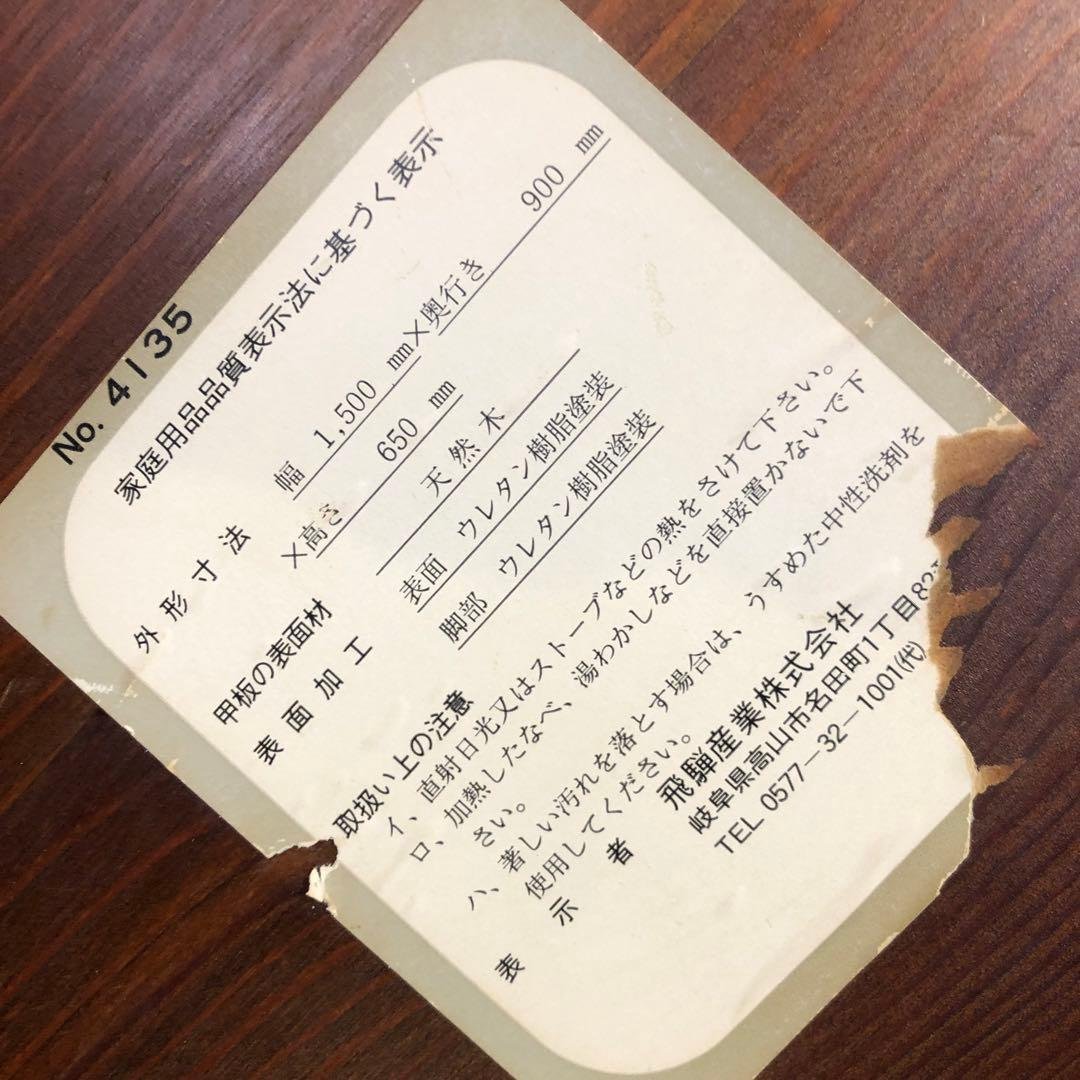 No. 4135
家庭用品品質表示法に基づく表示
外形寸法 幅 1,500 mm×奥行き 900 mm
×高さ 650 mm
甲板の表面材 天然木
表面加工 表面 ウレタン樹脂塗装
脚部 ウレタン樹脂塗装
取扱い上の注意
イ、直射日光又はストーブなどの熱をさけて下さい。
ロ、加熱したなべ、湯わかしなどを直接置かないで下
さい。
ハ、著しい汚れを落とす場合は、うすめた中性洗剤を
使用してください。
表示者 飛騨産業株式会社
岐阜県高山市名田町1丁目82
TEL 0577-32-1001(代)